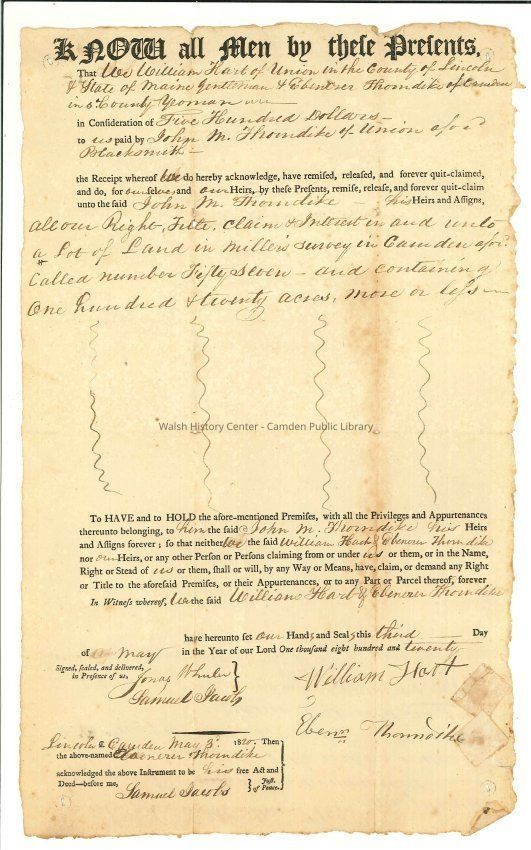 KNOW all Men by these Presents,
That We William Hart of Union in the County of Lincoln
& State of Maine Gentleman & Ebenezer Thorndike of Camden
in sd County Yeoman
in Consideration of Five Hundred Dollars
to us paid by John M. Thorndike of Union aford
Blacksmith
the Receipt whereof We do hereby acknowledge, have remised, released, and forever quit-claimed,
and do, for ourselves, and our Heirs, by these Presents, remise, release, and forever quit-claim
unto the said John M. Thorndike his Heirs and Assigns,
all our Right, Title, claim & Interest in and unto
a Lot of Land in Millers survey in Camden aford
Called number Fifty Seven - and containing
One hundred & twenty acres, more or less
Walsh History Center - Camden Public Library
To HAVE and to HOLD the afore-mentioned Premises, with all the Privileges and Appurtenances
thereunto belonging, to him the said John M. Thorndike his Heirs
and Assigns forever; so that neither We the said William Hart & Ebenezer Thorndike
nor our Heirs, or any other Person or Persons claiming from or under us or them, or in the Name,
Right or Stead of us or them, shall or will, by any Way or Means, have, claim, or demand any Right
or Title to the aforesaid Premises, or their Appurtenances, or to any Part or Parcel thereof, forever
In Witness whereof, We the said William Hart & Ebenezer Thorndike
have hereunto set our Hands and Seals this third Day
of May in the Year of our Lord One thousand eight hundred and twenty
Signed, sealed, and delivered,
in Presence of us,
Jonas Wheeler
Samuel Jacobs
William Hart
Ebenr Thorndike
Lincoln ss. Camden May 3d 1820. Then
the above-named Ebenezer Thorndike
acknowledged the above Instrument to be his free Act and
Deed—before me,
Samuel Jacobs Just. of Peace.